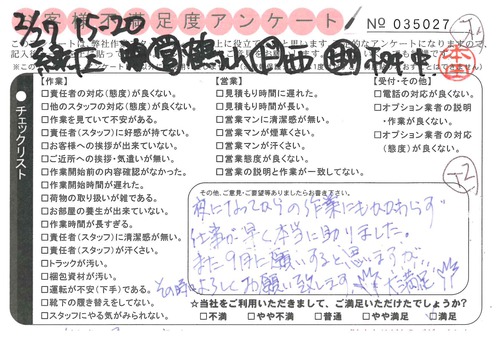 客様不満足度アンケート
No 035027
3/27 15-20
【作業】
□責任者の対応(態度)が良くない。
□他のスタッフの対応(態度)が良くない。
□作業を見ていて不安がある。
□責任者(スタッフ)に好感が持てない。
□お客様への挨拶が出来ていない。
□ご近所への挨拶・気遣いが無い。
□作業開始前の内容確認がなかった。
□作業開始時間が遅れた。
□荷物の取り扱いが雑である。
□お部屋の養生が出来ていない。
□作業時間が長すぎる。
□責任者(スタッフ)に清潔感が無い。
□責任者(スタッフ)が汗くさい。
□トラックが汚い。
□梱包資材が汚い。
□運転が不安(下手)である。
□靴下の履き替えをしてない。
□スタッフにやる気がみられない。
【営業】
□見積もり時間に遅れた。
□見積もり時間が長い。
□営業マンに清潔感が無い。
□営業マンが煙草くさい。
□営業マンが汗くさい。
□営業態度が良くない。
□営業の説明と作業が一致してない。
【受付・その他】
□電話の対応が良くない。
□オプション業者の説明
・作業が良くない。
□オプション業者の対応
(態度)が良くない。
チェックリスト
その他、ご意見・ご要望等ありましたらお書き下さい。
夜になってからの作業にもかかわらず
仕事が早く本当に助りました。
また9月に願いすると思いますが、
その時よろしくお願い致します
大満足
☆当社をご利用いただきまして、ご満足いただけたでしょうか?
□不満 □やや不満 □普通 □やや満足 □満足